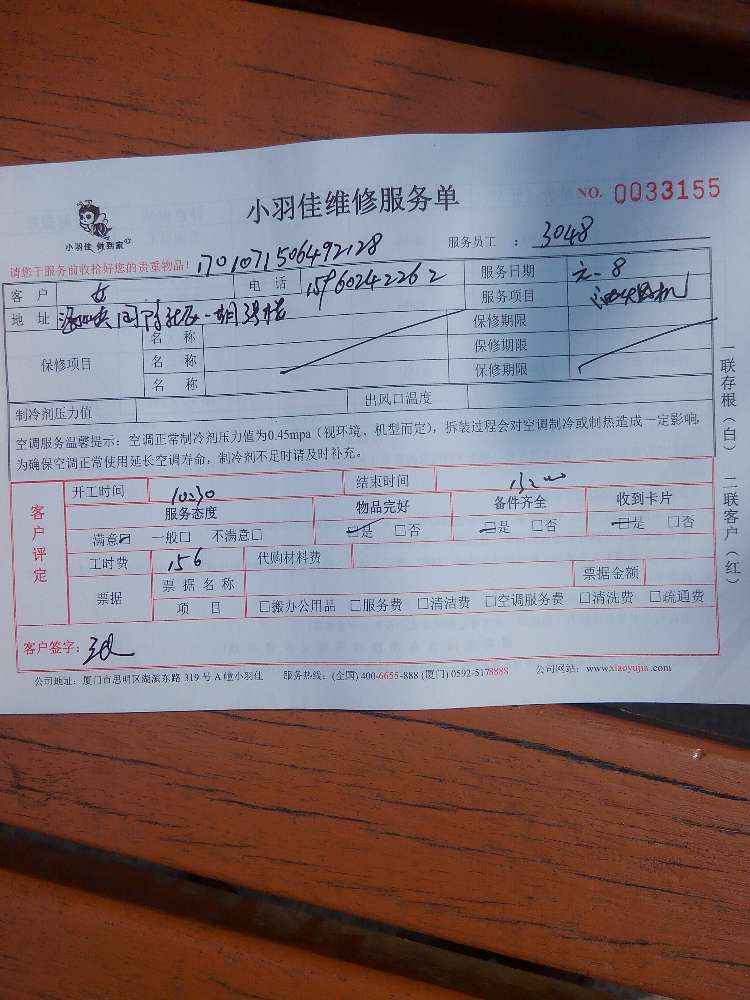 小羽佳维修服务单 NO. 0033155
小羽佳 做到家
请您于服务前收拾好您的贵重物品! 1701071506492128 服务员工 : 3048
客 户 女 电 话 15960242262 服务日期 元-8
地 址 服务项目
保修项目 名 称 保修期限
名 称 保修期限
名 称 保修期限
制冷剂压力值 出风口温度
空调服务温馨提示:空调正常制冷剂压力值为0.45mpa(视环境、机型而定),拆装过程会对空调制冷或制热造成一定影响,
为确保空调正常使用延长空调寿命,制冷剂不足时请及时补充。
客户评定
开工时间 10:30 结束时间
服务态度 物品完好 备件齐全 收到卡片
满意☑ 一般□ 不满意□ ☑是 □否 ☑是 □否 ☑是 □否
工时费 156 代购材料费
票据 票据名称 票据金额
项 目 □搬办公用品 □服务费 □清洁费 □空调服务费 □清洗费 □疏通费
客户签字:
公司地址:厦门市思明区湖滨东路 319 号 A 幢小羽佳 服务热线:(全国) 400-6655-888 (厦门) 0592-5178888 公司网站:www.xiaoyujia.com
一联存根(白) 二联客户(红)